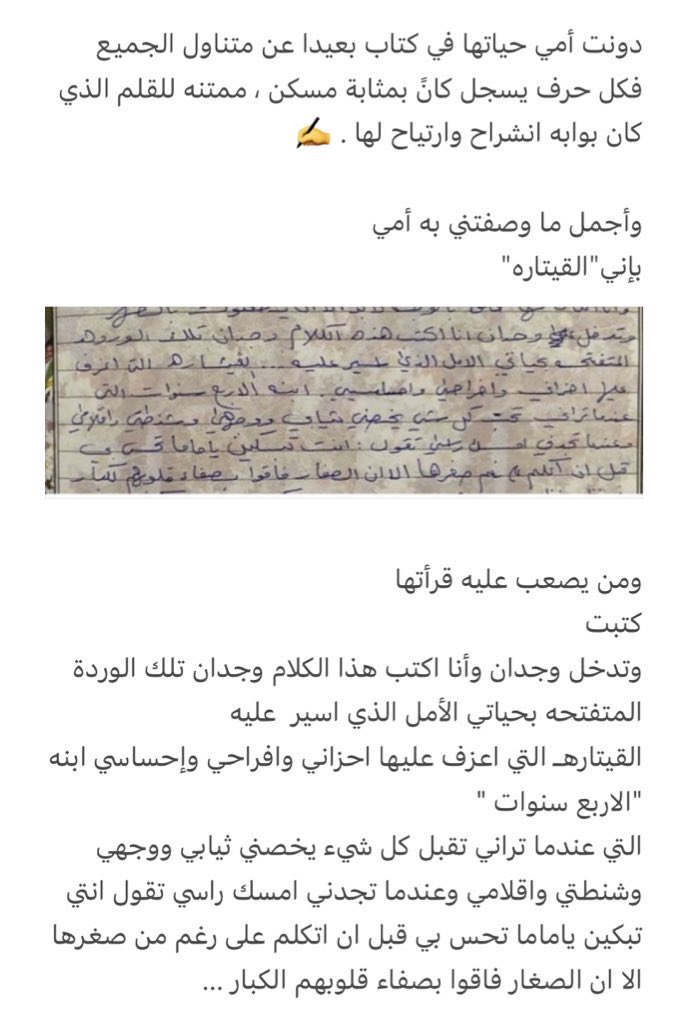 دونت أمي حياتها في كتاب بعيدا عن متناول الجميع
فكل حرف يسجل كانً بمثابة مسكن ، ممتنه للقلم الذي
كان بوابه انشراح وارتياح لها . ✍️
وأجمل ما وصفتني به أمي
بإني"القيتاره"
وتدخل وجدان انا اكتب هذه الكلام وجدان تلك الوروده
المتفتحه بحياتي الامل الذي اسير عليه ... القيتاره التي اعزف
عليها احزاني وافراحي واحساسي. ابنه الاربع سنوات التي
عندما تراني تحب كل شي يخصني ثيابي ووجهي وشنطتي واقلامي
وعندما تجدني امسك راسي تقول : انت تبكين ياماما تحس بي
قبل ان اتكلم رغم صغرها الا ان الصغار فاقوا بصفاء قلوبهم الكبار
ومن يصعب عليه قرأتها
كتبت
وتدخل وجدان وأنا اكتب هذا الكلام وجدان تلك الوردة
المتفتحه بحياتي الأمل الذي اسير عليه
القيتارهـ التي اعزف عليها احزاني وافراحي وإحساسي ابنه
"الاربع سنوات "
التي عندما تراني تقبل كل شيء يخصني ثيابي ووجهي
وشنطتي واقلامي وعندما تجدني امسك راسي تقول انتي
تبكين ياماما تحس بي قبل ان اتكلم على رغم من صغرها
الا ان الصغار فاقوا بصفاء قلوبهم الكبار ...